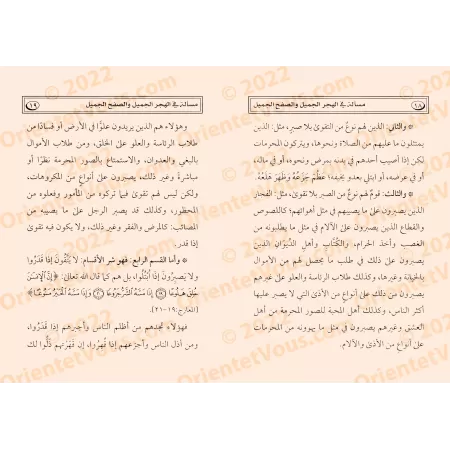 ١٨
مسألة في الهجر الجميل والصفح الجميل
* والثاني: الذين لهم نوعٌ من التقوى بلا صبرٍ، مثل: الذين
يمتثلون ما عليهم من الصلاة ونحوها، ويتركون المحرمات
لكن إذا أصيب أحدهم في بدنه بمرض ونحوه، أو في ماله،
أو في عرضه، أو ابتلي بعدو يخيفه؛ عَظُم جَزَعُهُ وَظَهر هَلعُهُ.
* والثالث: قومٌ لهم نوع من الصبر بلا تقوى، مثل: الفجار
الذين يصبرون على ما يصيبهم في مثل أهوائهم؛ كاللصوص
والقطاع الذين يصبرون على الآلام في مثل ما يطلبونه من
الغصب وأخذ الحرام، والكُتَّاب وأهل الدِّيوَان الذين
يصبرون على ذلك في طلب ما يحصل لهم من الأموال
بالخيانة وغيرها، وكذلك طلاب الرئاسة والعلو على غيرهم
يصبرون من ذلك على أنواع من الأذى التي لا يصبر عليها
أكثر الناس، وكذلك أهل المحبة للصور المحرمة من أهل
العشق وغيرهم يصبرون في مثل ما يهوونه من المحرمات
على أنواع من الأذى والآلام.
مسألة في الهجر الجميل والصفح الجميل
١٩
وهؤلاء هم الذين يريدون علوًّا في الأرض أو فسادًا من
طلاب الرئاسة والعلو على الخلق، ومن طلاب الأموال
بالبغي والعدوان، والاستمتاع بالصور المحرمة نظرًا أو
مباشرة وغير ذلك، يصبرون على أنواع من المكروهات،
ولكن ليس لهم تقوى فيما تركوه من المأمور وفعلوه من
المحظور، وكذلك قد يصبر الرجل على ما يصيبه من
المصائب: كالمرض والفقر وغير ذلك، ولا يكون فيه تقوى
إذا قدر.
* وأما القسم الرابع: فهو شر الأقسام: لا يَتَّقُونَ إذا قَدَرُوا
ولا يَصبِرُونَ إذا ابْتُلُوا، بل هم كما قال الله تعالى: ﴿إِنَّ الْإِنسَٰنَ
خُلِقَ هَلُوعًا ۝١٩ إِذَا مَسَّهُ الشَّرُّ جَزُوعًا ۝٢٠ وَإِذَا مَسَّهُ الْخَيْرُ مَنُوعًا﴾
[المعارج: ١٩-٢١].
فهؤلاء تجدهم من أظلم الناس وأجبرهم إذا قَدَرُوا،
ومن أذل الناس وأجزعهم إذا قُهِرُوا، إن قهرتهم ذَلُّوا لك
© 2022
OrientetVous.com